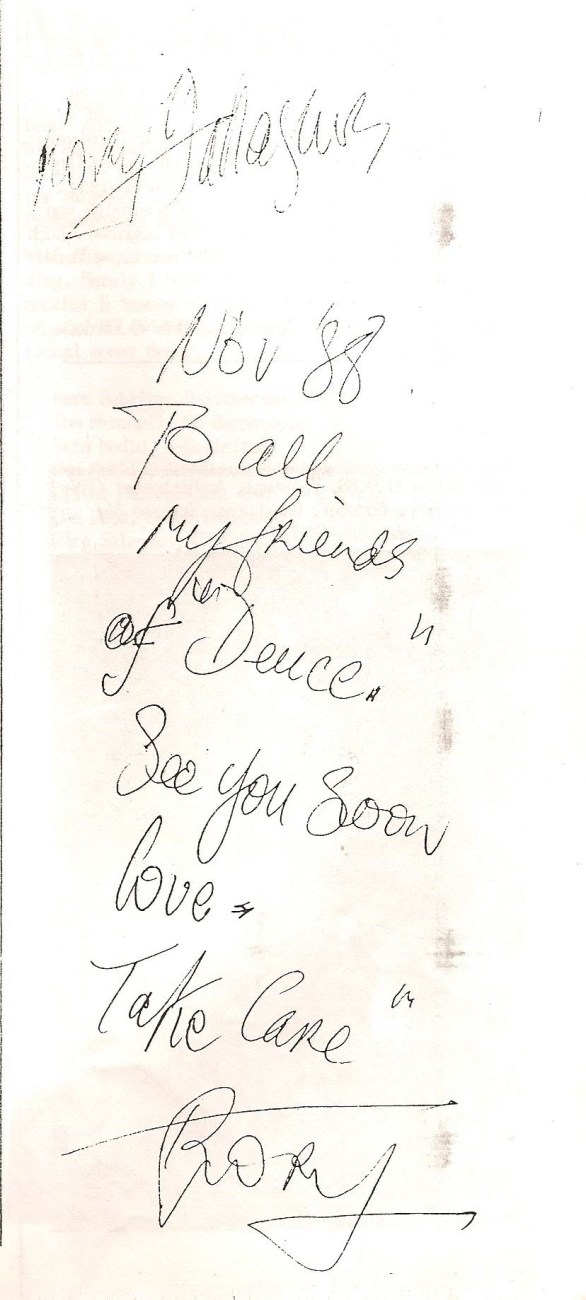 Rory Gallagher
Nov '88
To all
my friends
in
of "Deuce."
See you soon
love =
Take Care "
Rory